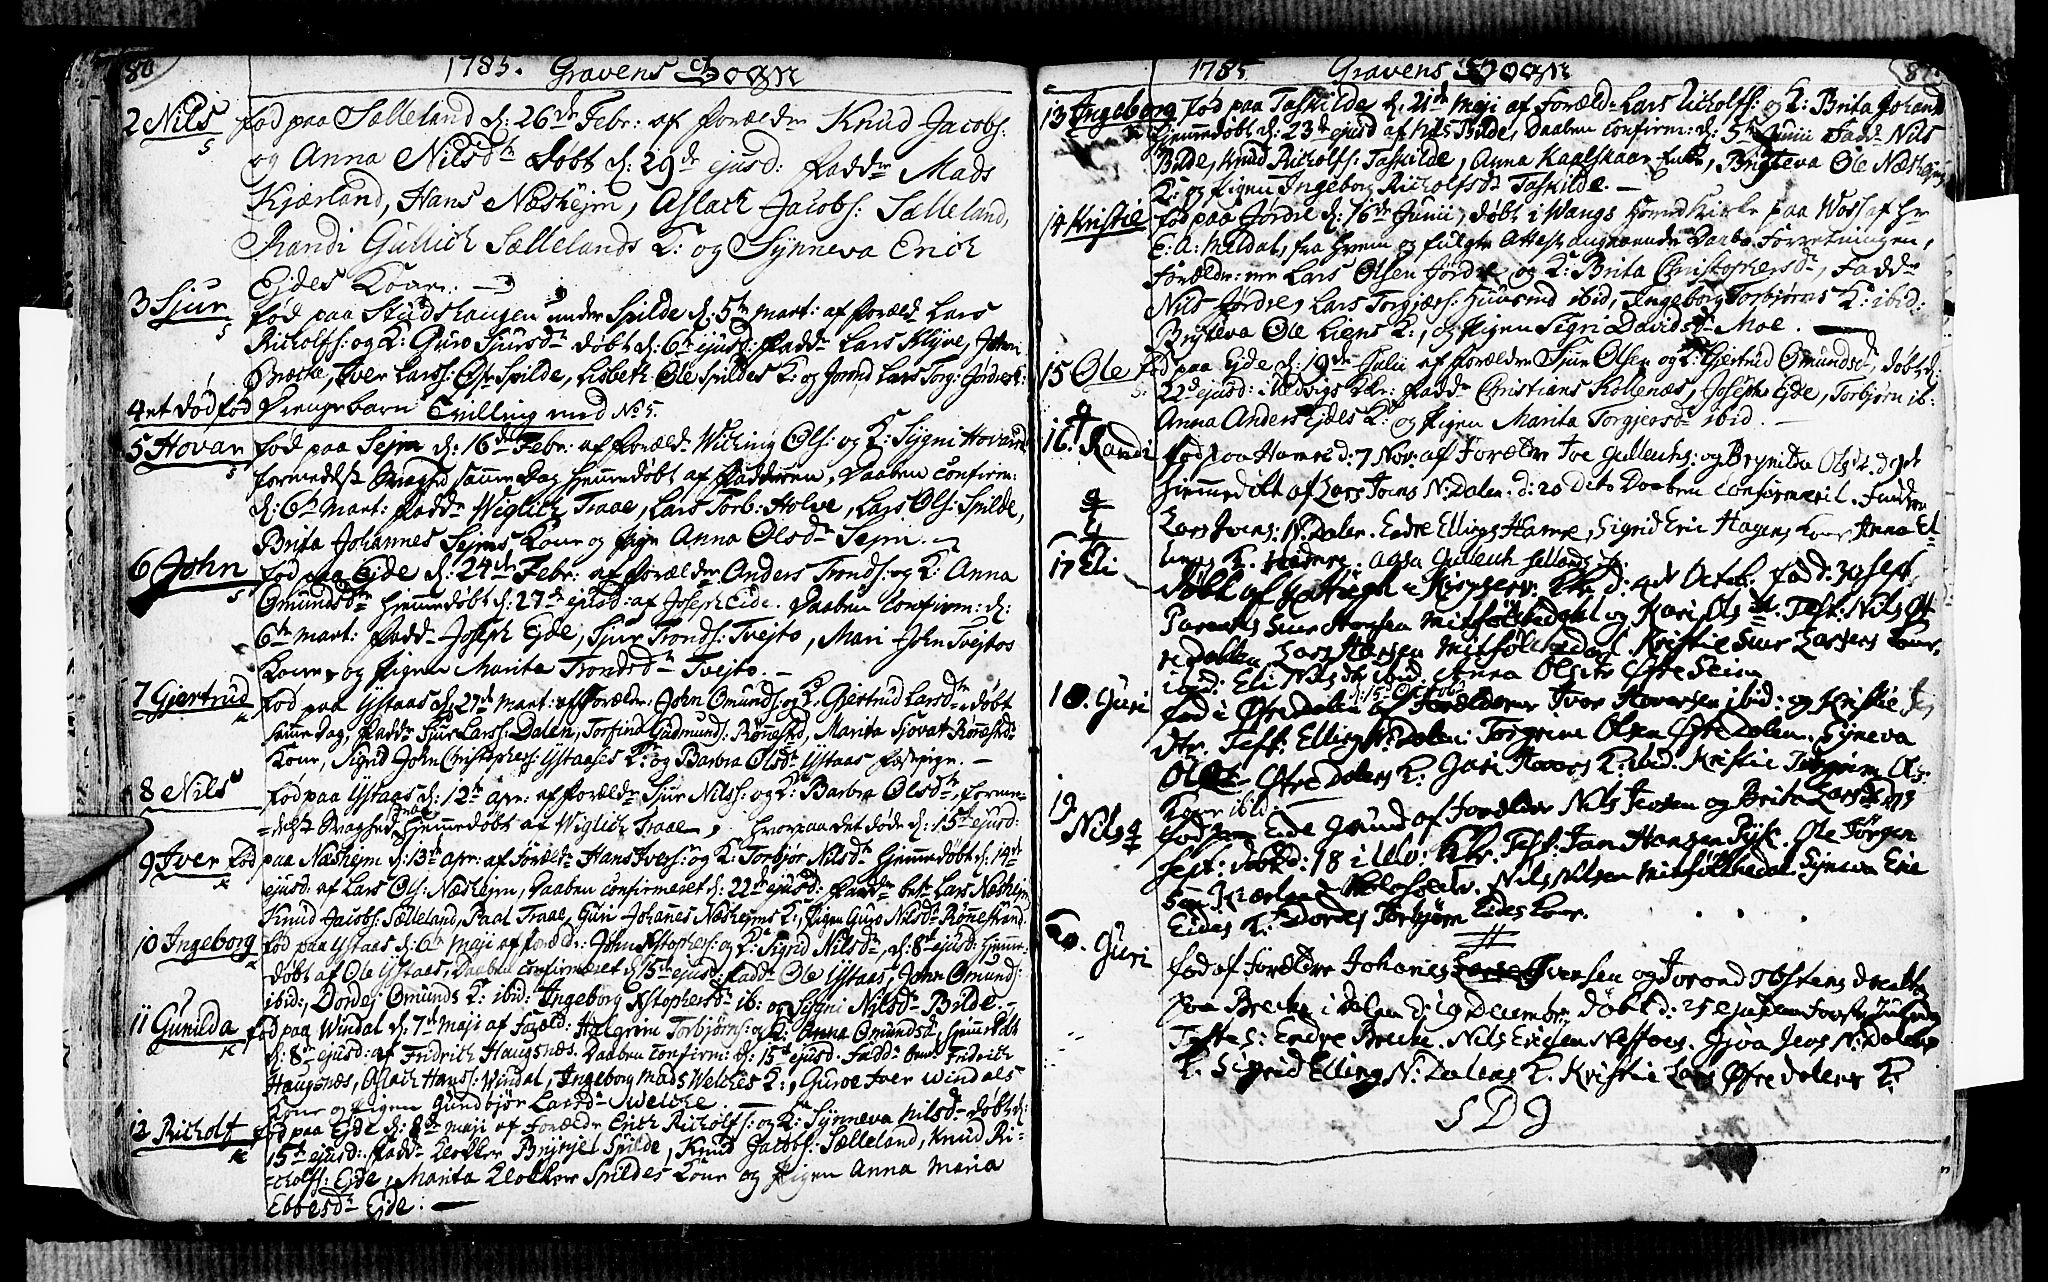 80
1785. Gravens Sogn
2 Nils fød paa Sælleland d: 26de Febr: af forældr Knud Jacobs:
og Anna Nilsdtr døbt d: 29de ejusd: Faddr Mads
Kjærland, Hans Næshejm, Aslach Jacobs: Sælleland,
Randi Gullich Sællelands K: og Synneva Erich
Ejdes Kone.
3 Sjur fød paa Skudshaugen under Spilde d: 5te Mart: af foræld Lars
Richolfs: og K: Guro Sjursdtr døbt d: 6te ejusd: Faddr Lars Klyve, John
Bræcke, Iver Larss: Spilde, Lisbeth Ole Spildes K: og Jorond Lars Torg: Jordres K:
4 et dødfød Drengebarn Tvilling med No 5.
5 Hovar fød paa Sejm d: 16de Febr: af forældr Wiching Ols: og K: Sygni Hovarsd
formedelst Svaghed samme Dag hjemmedøbt af Fadderen, Daaben confirm:
d: 6te Mart: Faddr Wiglich Traae, Lars Torb: Holve, Lars Ols: Spilde,
Brita Johannes Sejms Kone og Pige Anna Olsdr Sejm.
6 John fød paa Ejde d: 24de Febr: af forældre Anders Tronds: og K: Anna
Omundsdtr hjemmedøbt d: 27de ejusd: af Joseph Eide. Daaben Confirm: d:
6te Mart: Faddr Joseph Ejde, Sjur Tronds: Tvejto, Mari John Tvejtos
Kone, og Pigen Marita Trondsdr Tvejto.
7 Gjertrud fød paa Ystaas d: 27de Mart: af Forældr: John Omunds: og K: Gjertrud Larsdtr døbt
samme Dag, Faddr Sjur Larss: Dalen, Torfind Gudmunds: Rønestd, Marita Siovat Rønestds
Kone, Sigrid John Christophers: Ystaases K: og Barbra Olsdr Ystaas Fostpige.
8 Nils fød paa Ystaas d: 12te Apr: af Forældr Sjur Nilss: og K: Barbra Olsdtr, forme-
delst Svaghed hjemmedøbt af Wiglich Traae, hvorpaa det døde d: 15te ejusd:
9 Iver fød paa Næshejm d: 13te Apr: af Forældr Hans Ivers: og K: Torbjør Nilsdtr hjemmedøbt d: 14de
ejusd: af Lars Ols: Næshejm, Daaben confirmeret d: 22de ejusd: Faddr bem: Lars Næshejm
Knud Jacobs: Sælleland, Paal Traae, Guri Johanes Næshejms K:, Pigen Guro Nilsdr Rønestrand.
10 Ingeborg fød paa Ystaas d: 6te Maji af foræld: John Xstophers: og K: Sigrid Nilsdr, d: 8de ejusd: hjemme-
døbt af Ole Ystaas, Daaben confirmeret d: 15te ejusd: Faddr Ole Ystaas, John Omunds:
ibid:, Dordej Omunds K: ibid: Ingeborg Xstophersdr ib: og Sygni Nilsdr Bilde.
11 Gunilda fød paa Windal d: 7de Maji af Foræld: Halgrim Torbjørns: og K: Anna Omundsdr, hjemmedøbt
d: 8de ejusd: af Fridrich Haugsnæs. Daaben confirm: d: 15te ejusd: Faddr bem: Fridrich
Haugsnæs, Aslach Hans: Windal, Ingeborg Mads Welches K:, Guroe Iver Windals
Kone og Pigen Gundbjør Larsdr Welche.
12 Richolf fød paa Ejde d: 8de Maji af Forældr Erich Richolfs: og K: Synneva Nilsdr døbt d:
15te ejusd: Faddr Klokker Brynjel Spilde, Knud Jacobs: Sælleland, Knud Ri-
cholfs: Ejde, Marita Klokker Spildes Kone og Pigen Anna Maria
Ebbesdr Ejde.
1785 Gravens Sogn
13 Ingeborg fød paa Taskilde d: 21de Maji af Forældr Lars Richolfs: og K: Brita Johans
hjemmedøbt d: 23de ejusd af Nils Bilde, Daaben Confirm: d: 5te Junii Faddr Nils
Bilde, Knud Richolfs: Taskilde, Anna Kaalskaar Enke, Brytteva Ole Næshejms
K: og Pigen Ingeborg Richolfsdr Taskilde.
14 Kristie fød paa Jordre d: 16de Junii, døbt i Wangs Hoved Kirke paa Woss af Hr
E: A: Meldal, fra hvem og fulgte Attest angaaende Daabs Forretningen,
Forældre: ere Lars Olsen Jordre og K: Brita Christophersdr, Faddr
Nils Jordre, Lars Torgjers: Huusmd ibid, Ingeborg Torbjørns K: ibid:
Brytteva Ole Liens K:, og Pigen Sigri Davidsdr Moe.
15 Ole fød paa Ejde d: 19de Julii af forældre Sjur Olsen og K: Gjertrud Omundsd, døbt d:
22de ejusd: i Ulvigs Kkr: Faddr Christians Kollenæs, Joseph Ejde, Torbjørn ib:
Anna Anders Ejdes K: og Pigen Marita Torgjersdr ibid.
16. Randi fød paa Hamre d: 7 Nov: af Forældre Ive Gullichs: og Brynilda Olsdr d 9de
hjemmedøbt af Lars Ivens N: Dalen. d: 20 dito Daaben confirmeret. Faddere
Lars Ivens: N: Dalen. Endre Ellings Hamre, Sigrid Eric Hagens Kone Anna El-
lings K. Hamre. Aasa Gullich Sellands
17 Eli døbt af i Kirke d: 4de Octob. fød: Josep.
Parentes Siur Larsen Mitfølbedal og Kari Olsdtr. Test: Nils Øf-
re Dalen, Lars Hansen Mitfølbedal. Kristie Siur Larsens Kone.
ibid: Eli Nilsdtr ibid. Anna Olsdtr Øfre Seim
18. Guri fød i Øfre Dalen d: 15 Octob af Forældrene Iver Haversen ibid: og Kristie
dtr. Test: Elling N: Dalen: Torgrim Olsen Øfre Dalen. Syneva
Olsdt Øfre Dalens K: Guri Havers K: ibid. Kristie Torgrim Ols:
Kone ibid:
19 Nils fød paa Eide grund af Forældre Nils Ivesen og Brita Larsdtr d 13
Sept: døbt d: 18 i Ulv: Kkr. Test: Jan Hansen Ole Jørgen
sen Kiærland Nils Nilsen Mitfølbedal. Syneva Eric
Eides K: Dordej Torbiørn Eides Kone.
20. Guri fød af Forældre Johanes Iversen og Jorond Obstens
paa Brecke i Dalen d: 19 December: døbt d: 25 ejusdem
Testes: Endre Brecke. Nils Ericsen Giøa N: Dalens
K. Sigrid Elling N: Dalens K. Kristie Lars Øfre Dalens K:
S D G